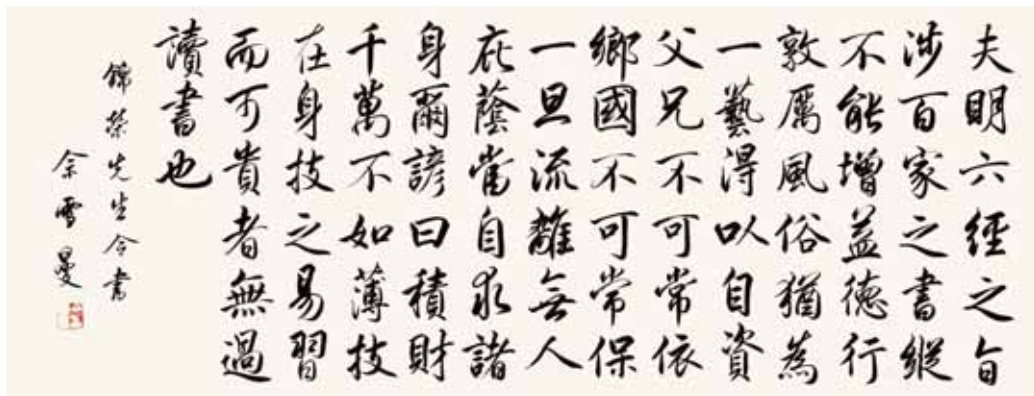 夫明六經之旨
涉百家之書縱
不能增益德行
敦厲風俗猶為
一藝得以自資
父兄不可常依
鄉國不可常保
一旦流離無人
庇蔭當自求諸
身爾諺曰積財
千萬不如薄技
在身技之易習
而可貴者無過
讀書也
錦榮先生令書
余雪曼